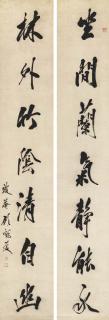 坐間蘭氣靜能永
林外竹陰清自幽